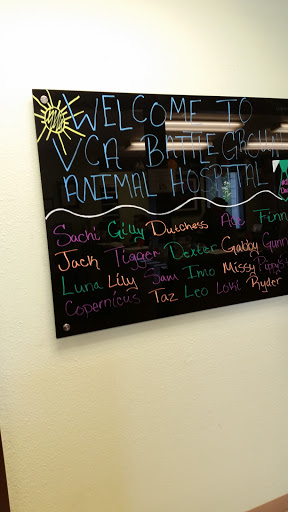 WELCOME TO
VCA BATTLE GROUN
ANIMAL HOSPITAL
Sachi Gilly Dutchess Finn
Jack Tigger Dexter Gabby Gunn
Luna Lily Sam Imo Missy
Copernicus Taz Leo Loki Ryder